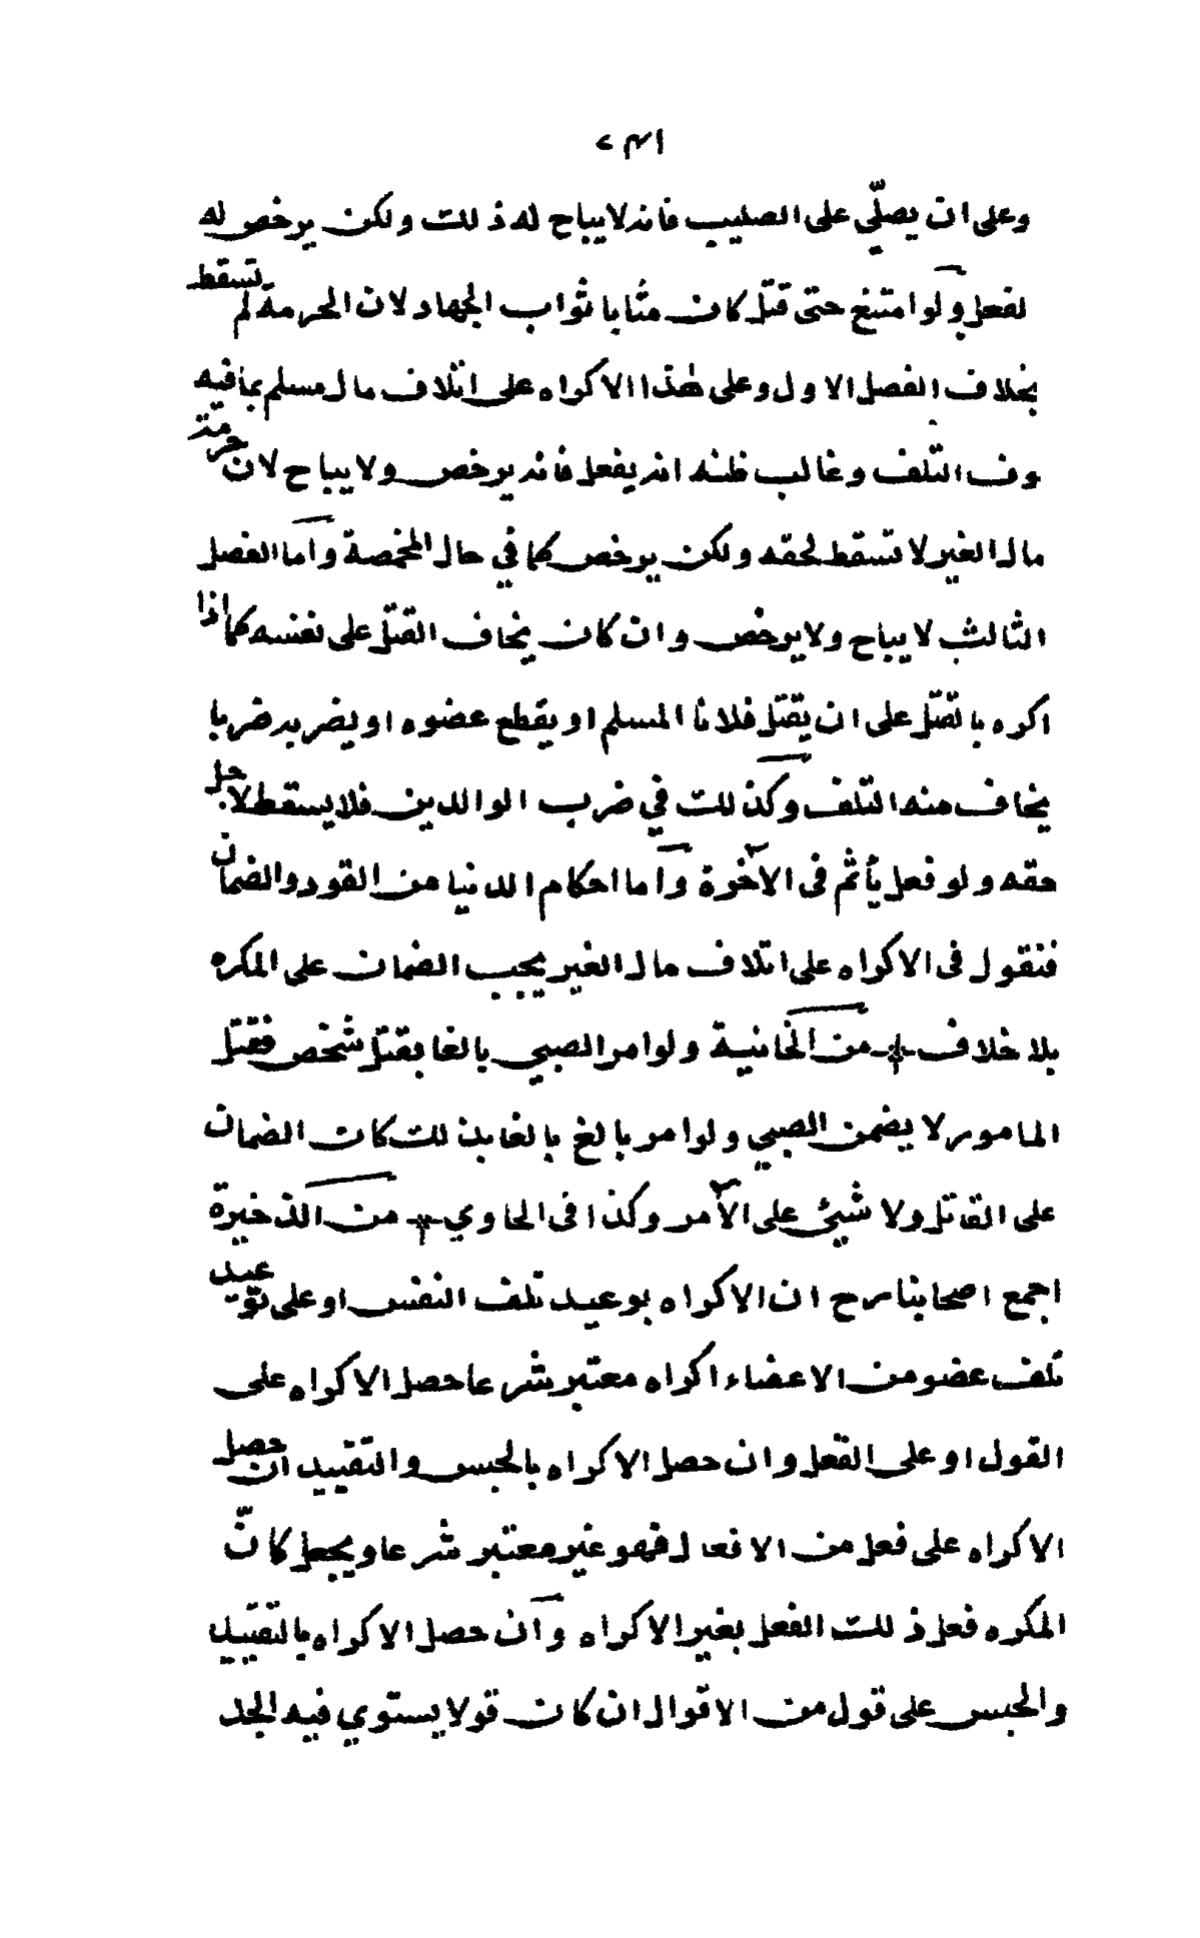 وعلى ان يصلّي على الصليب فانه لا يباح له ذلك ولكن يرخص له
لفعل ولو امتنع حتى قتل كان مثابا ثواب الجهاد لان الحرمة لم تسقط
بخلاف الفصل الاول وعلى هذا الاكراه على اتلاف مال مسلم بما فيه
وف التلف وغالب ظنه انه يفعل فانه يرخص ولا يباح لان حرمة
مال الغير لا تسقط لحقه ولكن يرخص كما في حال المخمصة واما الفصل
الثالث لا يباح ولا يرخص وان كان يخاف القتل على نفسه كما اذا
اكره بالقتل على ان يقتل فلانا المسلم او يقطع عضوه او يضربه ضربا
يخاف منه التلف وكذلك في ضرب الوالدين فلا يسقط لاجل
حقه ولو فعل يأثم فى الآخرة واما احكام الدنيا من القود والضمان
فنقول فى الاكراه على اتلاف مال الغير يجب الضمان على المكره
بلا خلاف من الخانية ولو امر الصبي بالغا بقتل شخص فقتل
المامور لا يضمن الصبي ولو امر بالغ بالغا بذلك كان الضمان
على القاتل ولا شيئ على الآمر وكذا فى الحاوي من الذخيرة
اجمع اصحابنا رح ان الاكراه بوعيد تلف النفس او على توعيد
تلف عضو من الاعضاء اكراه معتبر شرعا حصل الاكراه على
القول او على الفعل وان حصل الاكراه بالحبس والتقييد ان حصل
الاكراه على فعل من الافعال فهو غير معتبر شرعا ويجعل كانّ
المكره فعل ذلك الفعل بغير الاكراه وان حصل الاكراه بالتقييد
والحبس على قول من الاقوال ان كان قولا يستوي فيه الجد